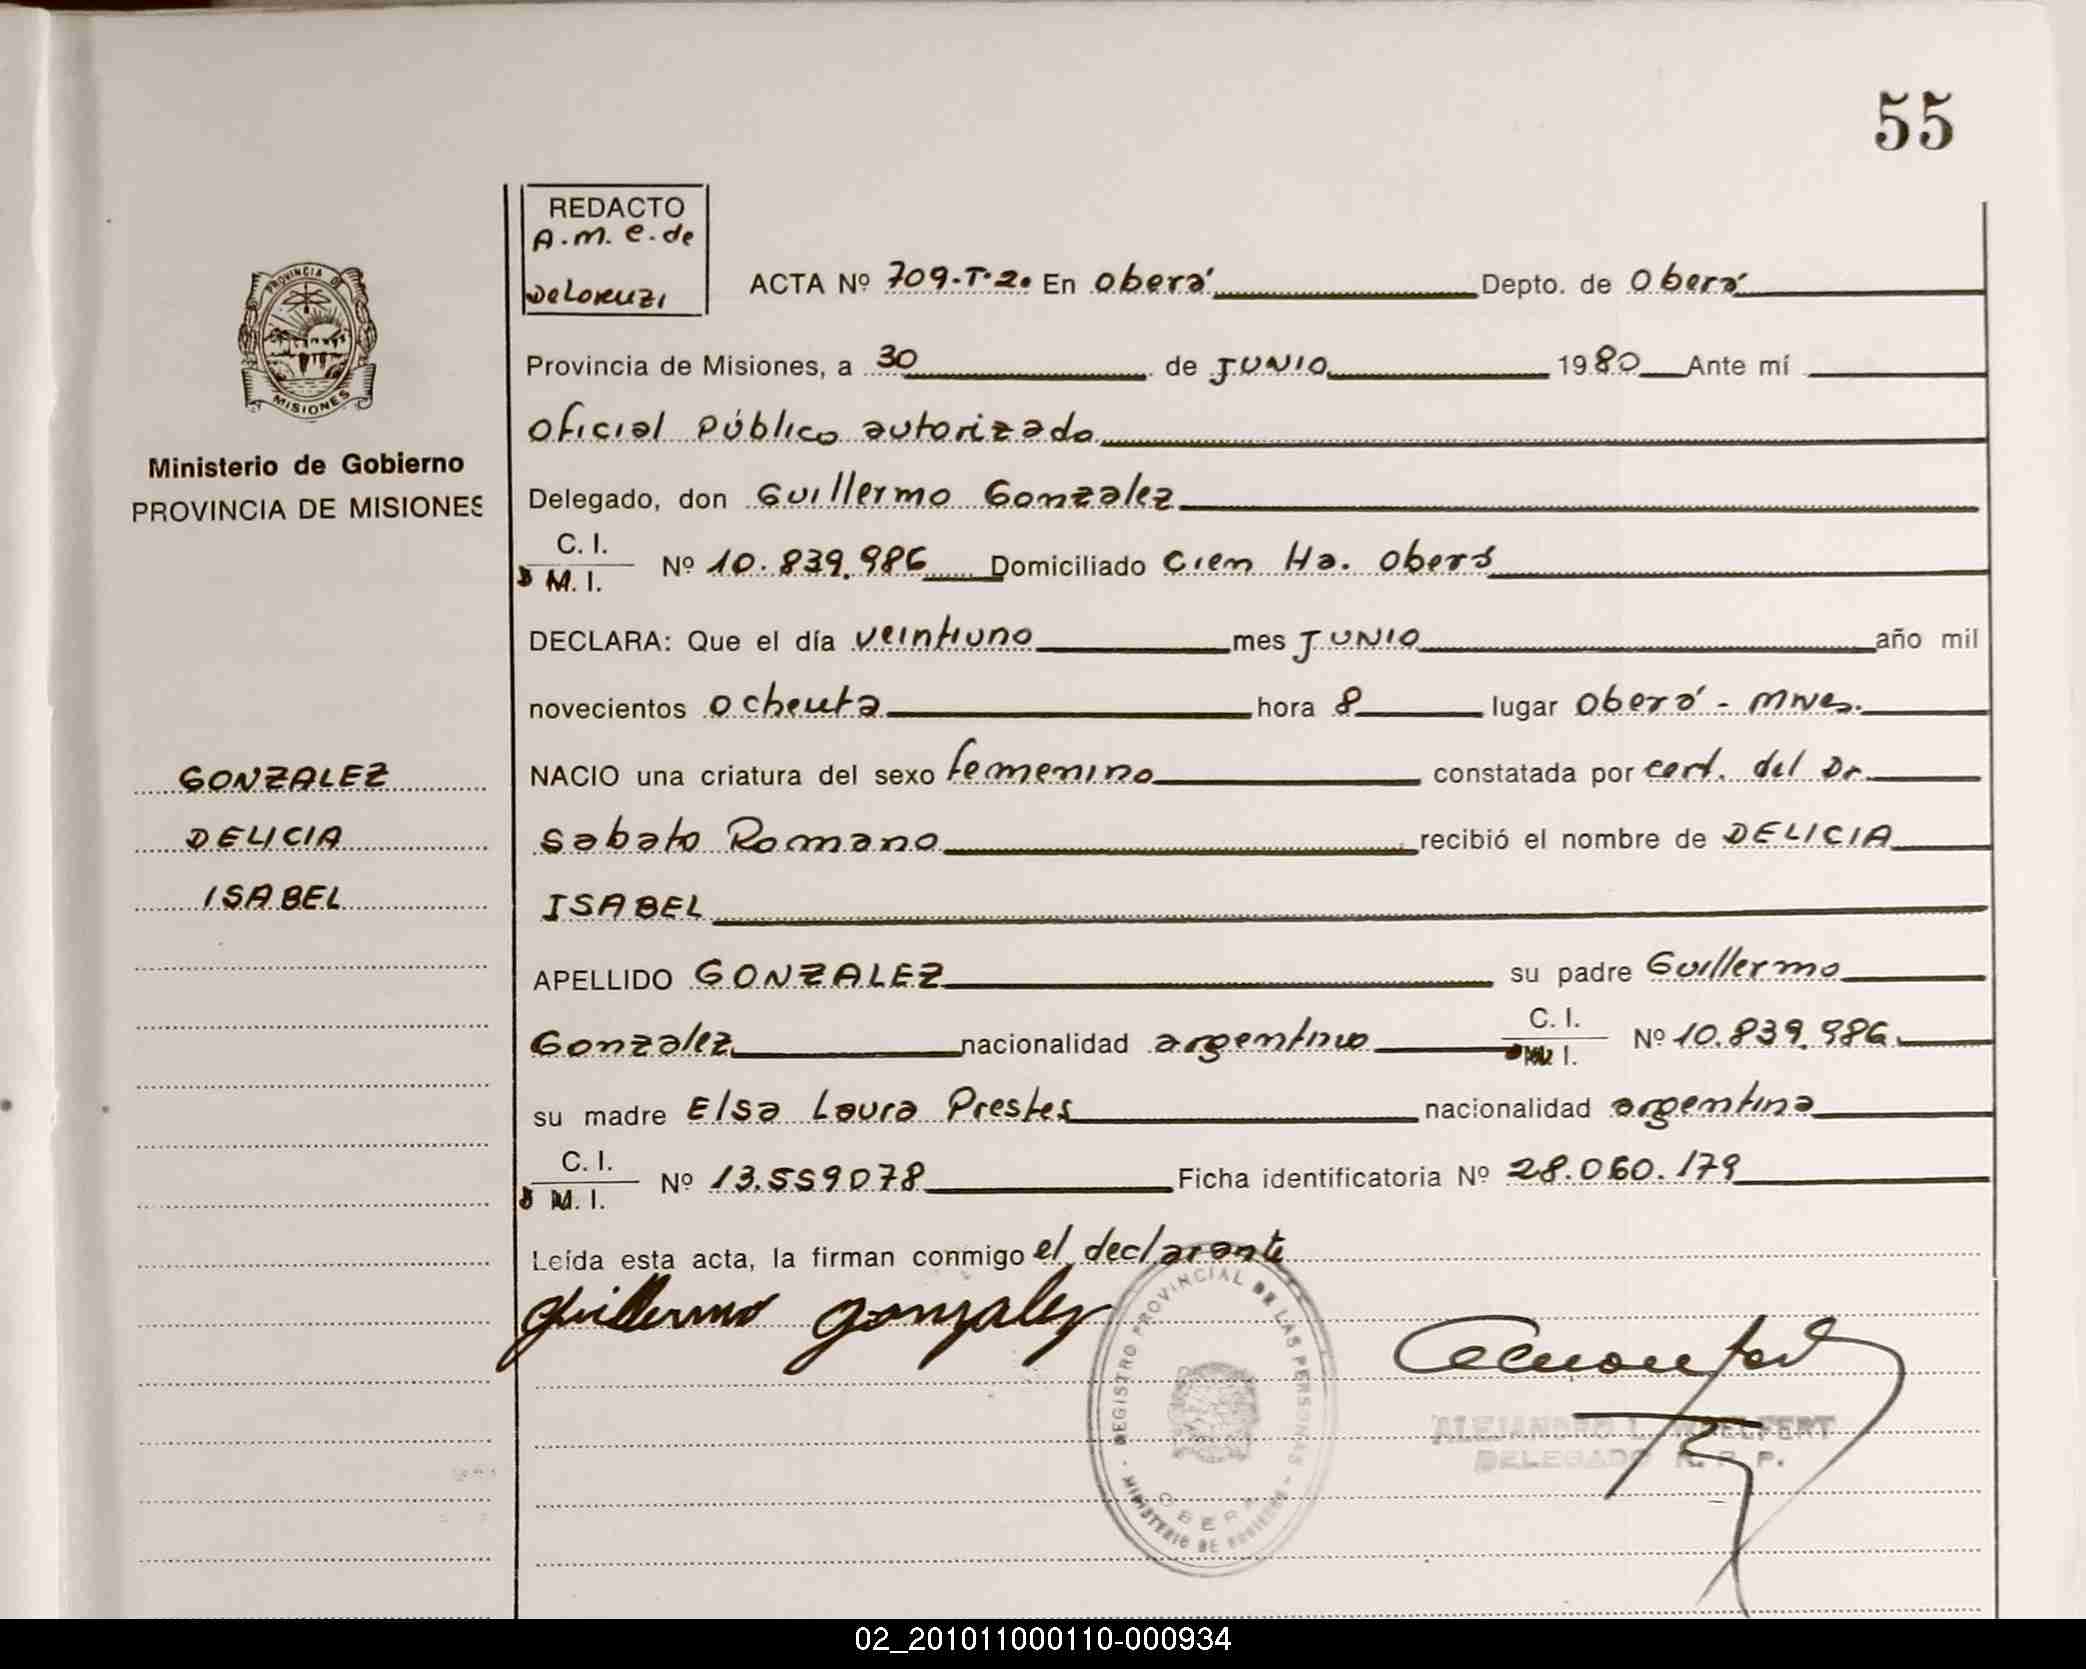 55
REDACTO
A.M.E. de
DeLorenzi
ACTA Nº 709-T-2. En Oberá Depto. de Oberá
Provincia de Misiones, a 30 de JUNIO 1980 Ante mí
Oficial Público autorizado
Ministerio de Gobierno
PROVINCIA DE MISIONES
Delegado, don Guillermo Gonzalez
C. I.
M. I. Nº 10.839.986 Domiciliado Cien Ha. Oberá
DECLARA: Que el día veintiuno mes JUNIO año mil
novecientos ochenta hora 8 lugar Oberá - Mnes.
GONZALEZ
DELICIA
ISABEL
NACIO una criatura del sexo femenino constatada por cert. del Dr.
Sabato Romano recibió el nombre de DELICIA
ISABEL
APELLIDO GONZALEZ su padre Guillermo
Gonzalez nacionalidad argentino C. I. M. I. Nº 10.839.986
su madre Elsa Laura Prestes nacionalidad argentina
C. I.
M. I. Nº 13.559078 Ficha identificatoria Nº 28.060.179
Leída esta acta, la firman conmigo el declarante
Guillermo Gonzalez
REGISTRO PROVINCIAL DE LAS PERSONAS
MINISTERIO DE GOBIERNO
OBERA
ALEJANDRO L. WOELFERT
DELEGADO R. P. P.
PROVINCIA DE
MISIONES
02_201011000110-000934